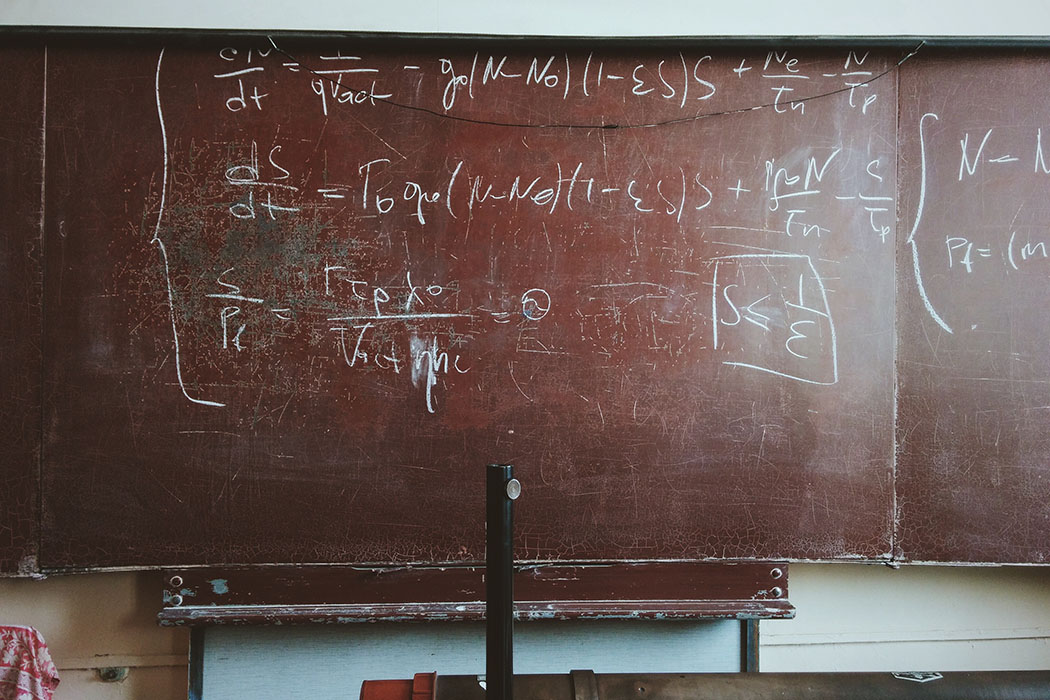 dN/dt = I/qVact - g₀(N-N₀)(1-εS)S + Ne/τn - N/τp
dS/dt = Γ₀g₀(N-N₀)(1-εS)S + N/τn - S/τp
S/Pf = Γτpλ₀/Vact ηhc = ②
S ≤ 1/ε
N -
Pf = (m